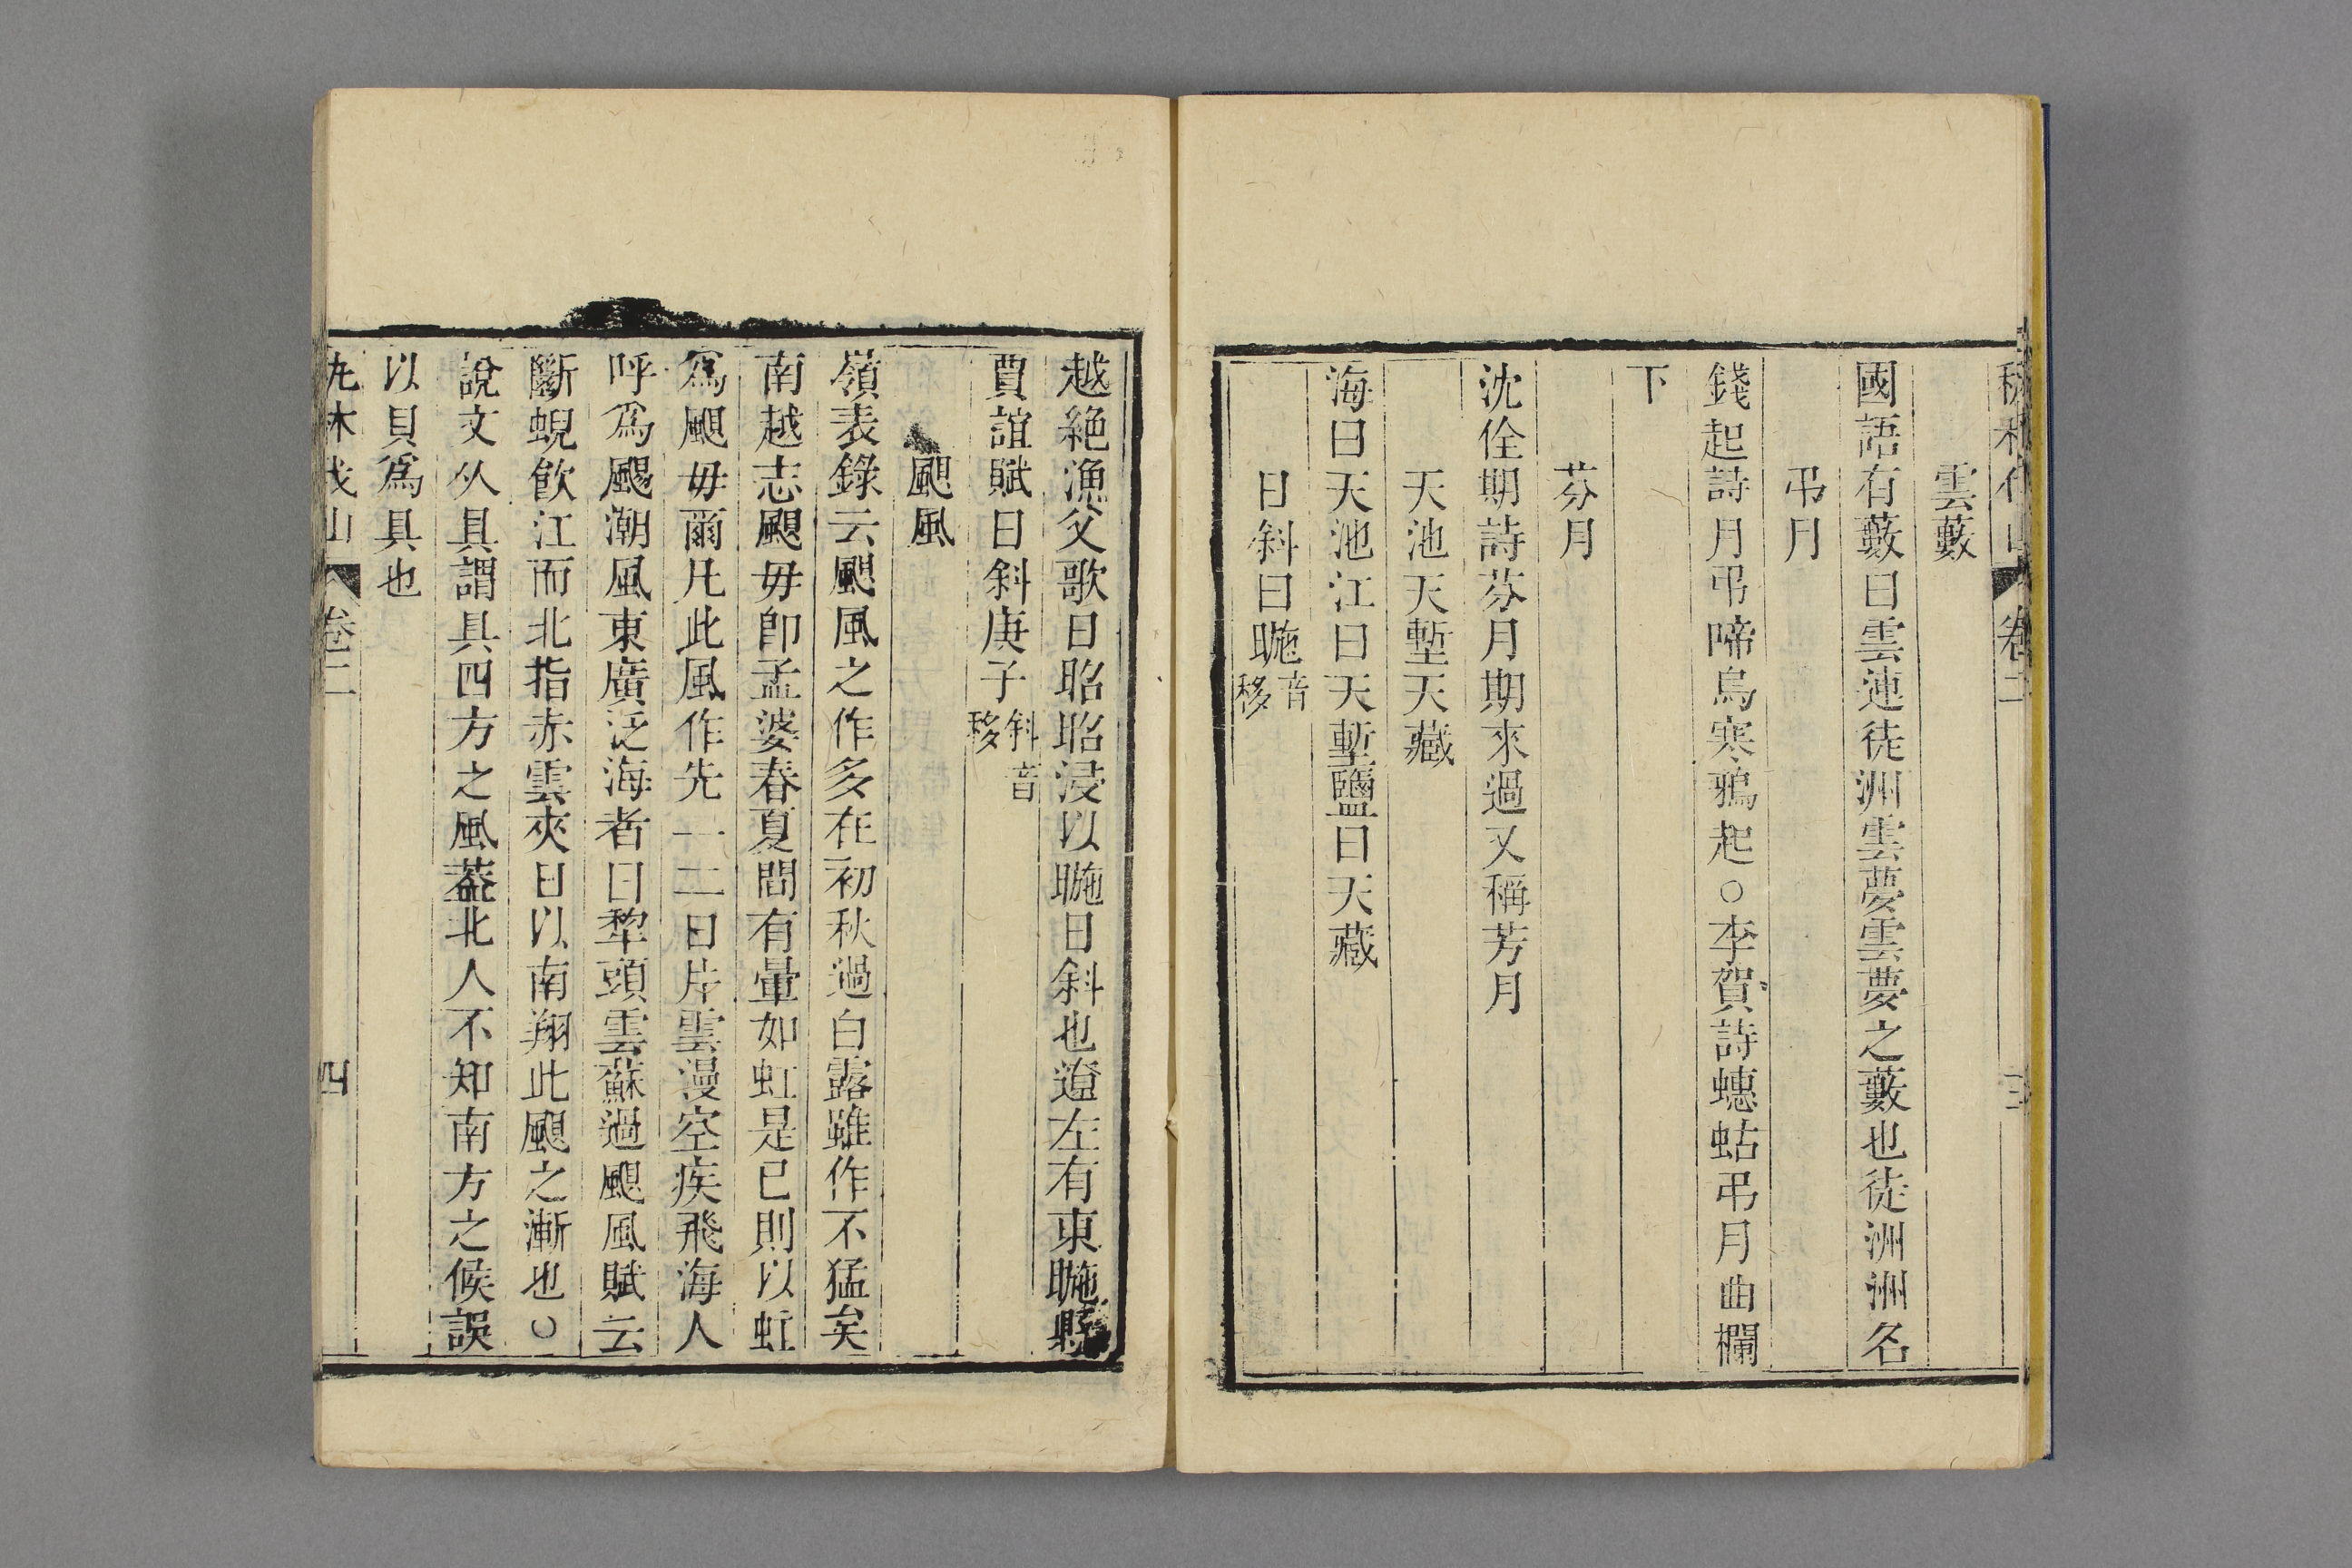 秇林伐山 卷二 三
雲藪
國語有藪曰雲連徒洲雲夢雲夢之藪也徒洲洲名
弔月
錢起詩月弔啼烏寒鴉起○李賀詩蟪蛄弔月曲欄
下
芬月
沈佺期詩芬月期來過又稱芳月
天池天塹天藏
海曰天池江曰天塹鹽曰天藏
日斜曰暆音移
越絶漁父歌日昭昭浸以暆日斜也遼左有東暆縣
賈誼賦日斜庚子斜音移
䫻風
嶺表錄云䫻風之作多在初秋過白露雖作不猛矣
南越志䫻毋卽孟婆春夏間有暈如虹是已則以虹
爲䫻毋爾凡此風作先一二日片雲漫空疾飛海人
呼爲颺潮風東廣泛海者曰犂頭雲蘇過䫻風賦云
斷蜺飮江而北指赤雲夾日以南翔此䫻之漸也○
說文从具謂具四方之風葢北人不知南方之候誤
以貝爲具也
秇林伐山 卷二 四